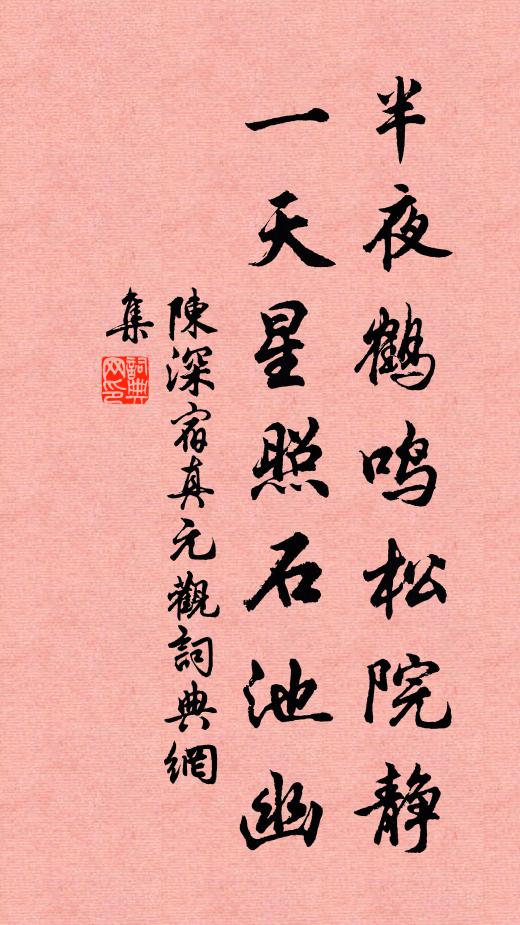 半夜鹤鸣松院静
一天星照石池幽
陳深宿真元觀詞典網
集
詞典
网印